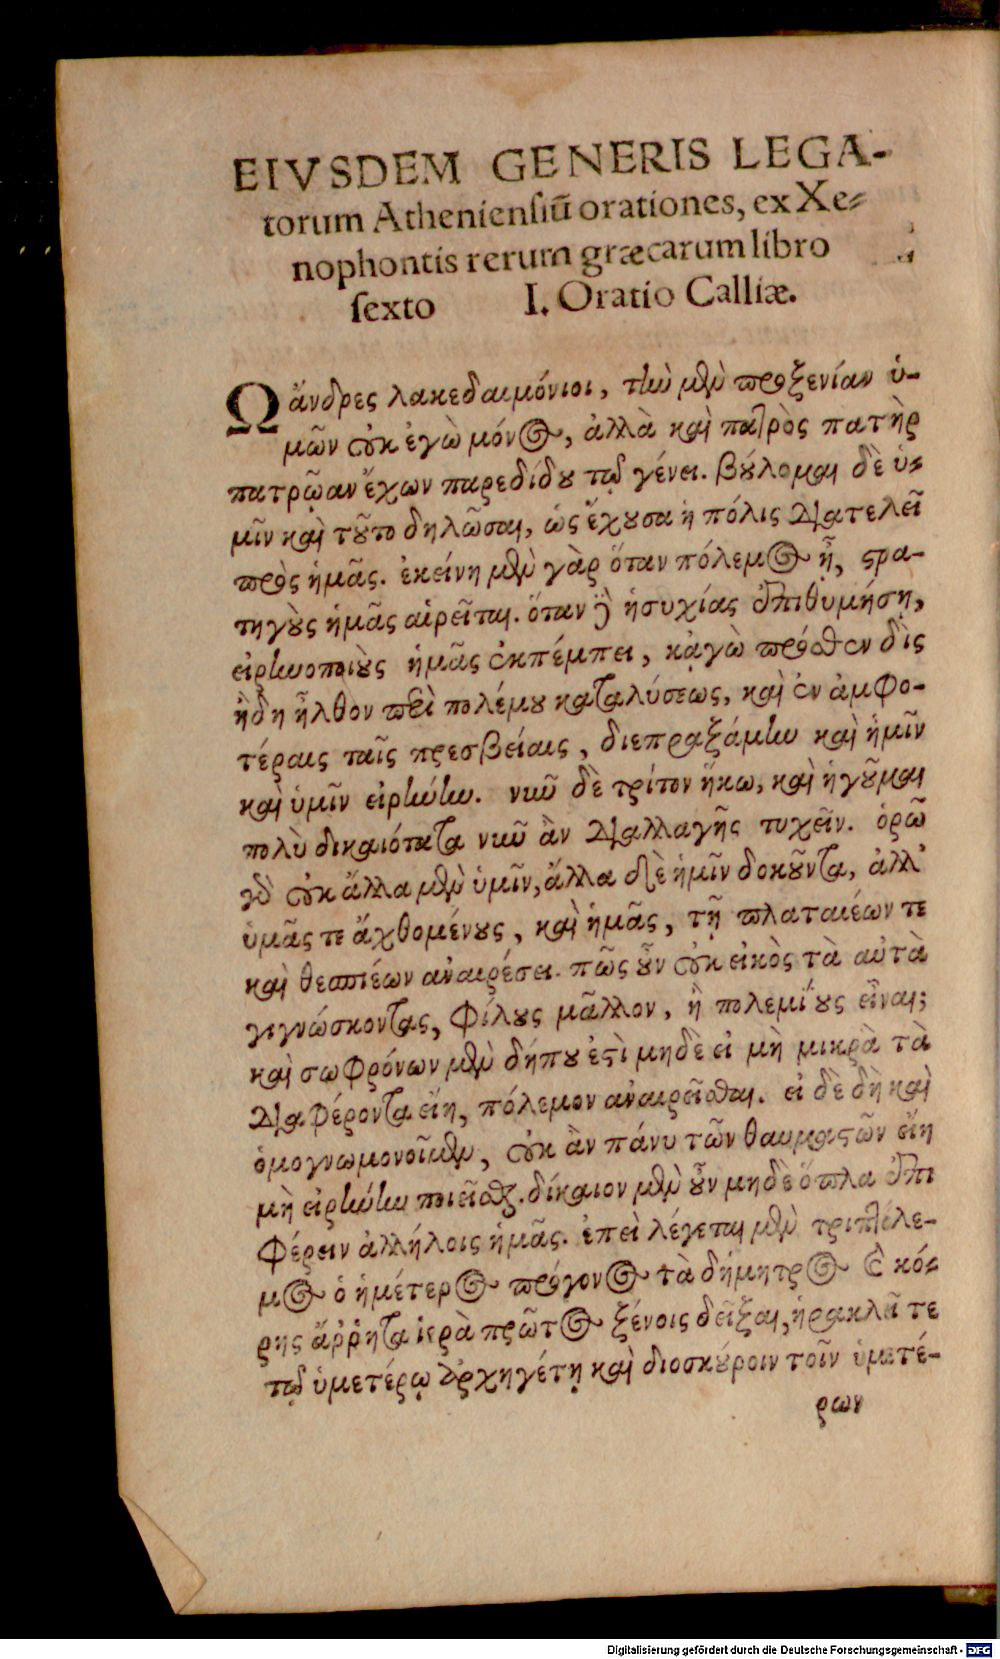 EIVSDEM GENERIS LEGA-
torum Athenienſiũ orationes, ex Xe-
nophontis rerum græcarum libro
ſexto I. Oratio Calliæ.
Ω ἄνδρες λακεδαιμόνιοι, τὴν μὲν προξενίαν ὑ-
μῶν οὐκ ἐγὼ μόνος, ἀλλὰ καὶ πατρὸς πατὴρ
πατρῴαν ἔχων παρεδίδου τῷ γένει. βούλομαι δὲ ὑ-
μῖν καὶ τοῦτο δηλῶσαι, ὡς ἔχουσα ἡ πόλις διατελεῖ
πρὸς ἡμᾶς. ἐκείνη μὲν γὰρ ὅταν πόλεμος ᾖ, στρα-
τηγοὺς ἡμᾶς αἱρεῖται. ὅταν δὲ ἡσυχίας ἐπιθυμήσῃ,
εἰρηνοποιοὺς ἡμᾶς ἐκπέμπει, κᾀγὼ πρόσθεν δὶς
ἤδη ἦλθον περὶ πολέμου καταλύσεως, καὶ ἐν ἀμφο-
τέραις ταῖς πρεσβείαις, διεπραξάμην καὶ ἡμῖν
καὶ ὑμῖν εἰρήνην. νῦν δὲ τρίτον ἥκω, καὶ ἡγοῦμαι
πολὺ δικαιότατα νῦν ἂν διαλλαγῆς τυχεῖν. ὁρῶ
γὰρ οὐκ ἄλλα μὲν ὑμῖν, ἄλλα δὲ ἡμῖν δοκοῦντα, ἀλλ'
ὑμᾶς τε ἀχθομένους, καὶ ἡμᾶς, τῇ πλαταιέων τε
καὶ θεσπιέων ἀναιρέσει. πῶς οὖν οὐκ εἰκὸς τὰ αὐτὰ
γιγνώσκοντας, φίλους μᾶλλον, ἢ πολεμίους εἶναι;
καὶ σωφρόνων μὲν δήπου ἐστὶ μηδὲ εἰ μὴ μικρὰ τὰ
διαφέροντα εἴη, πόλεμον ἀναιρεῖσθαι. εἰ δὲ δὴ καὶ
ὁμογνωμονοῖμεν, οὐκ ἂν πάνυ τῶν θαυμαστῶν εἴη
μὴ εἰρήνην ποιεῖσθαι. δίκαιον μὲν οὖν μηδὲ ὅπλα ἐπι
φέρειν ἀλλήλοις ἡμᾶς. ἐπεὶ λέγεται μὲν τριπτόλε-
μος ὁ ἡμέτερος πρόγονος τὰ δήμητρος καὶ κό-
ρης ἄῤῥητα ἱερὰ πρῶτος ξένοις δεῖξαι, ἡρακλεῖ τε
τῷ ὑμετέρῳ ἀρχηγέτῃ καὶ διοσκούροιν τοῖν ὑμετέ-
ρων
Digitalisierung gefördert durch die Deutsche Forschungsgemeinschaft - DFG